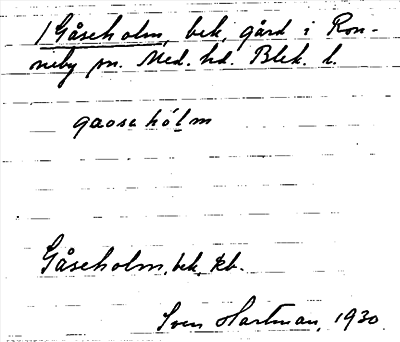 1 Gåseholm, bek, gård i Ron-
neby sn. Med. hd. Blek. l.
gaosa hólm
Gåseholm, bek, kb.
Sven Hartman, 1930